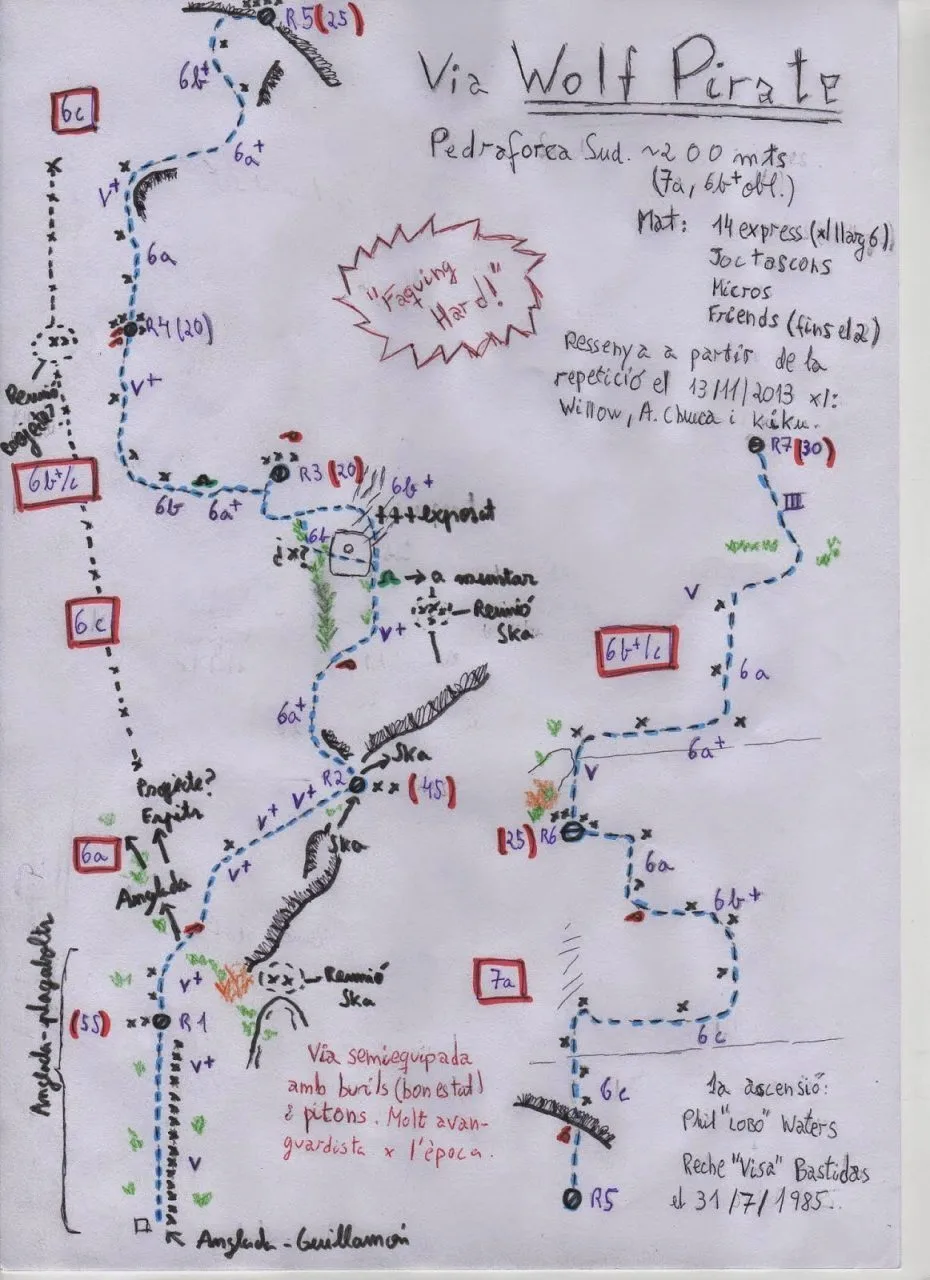 Via Wolf Pirate
Pedraforca Sud. ~200 mts
(7a, 6b+ obl.)
Mat: 14 express (x/llarg 6)
Joc tascons
Micros
Friends (fins el 2)
Ressenya a partir de la
repetició el 13/11/2013 x/:
Willow, A. Chuca i Kiku.
"Faquing
Hard!"
R5 (25)
6b+
6c
6a+
V+
6a
R4 (20)
Reunió
V+
6b+/c
R3 (20)
6b
6a+
6b+
+++exposat
6b
¿x?
→ a muntar
Reunió
Ska
V+
6c
6a+
Ska
R2
(45)
V+
V+
V+
Ska
Projecte?
6a
Anglada
V+
Reunió
Ska
(55)
R1
V+
V
Anglada-Guillamón
Via semiequipada
amb burils (bon estat)
i pitons. Molt avan-
guardista x l'època.
R7 (30)
III
V
6b+/c
6a
6a+
V
(25) R6
6a
6b+
7a
6c
6c
R5
1a ascensió:
Phil "LOBO" Waters
Reche "Visa" Bastidas
el 31/7/1985.